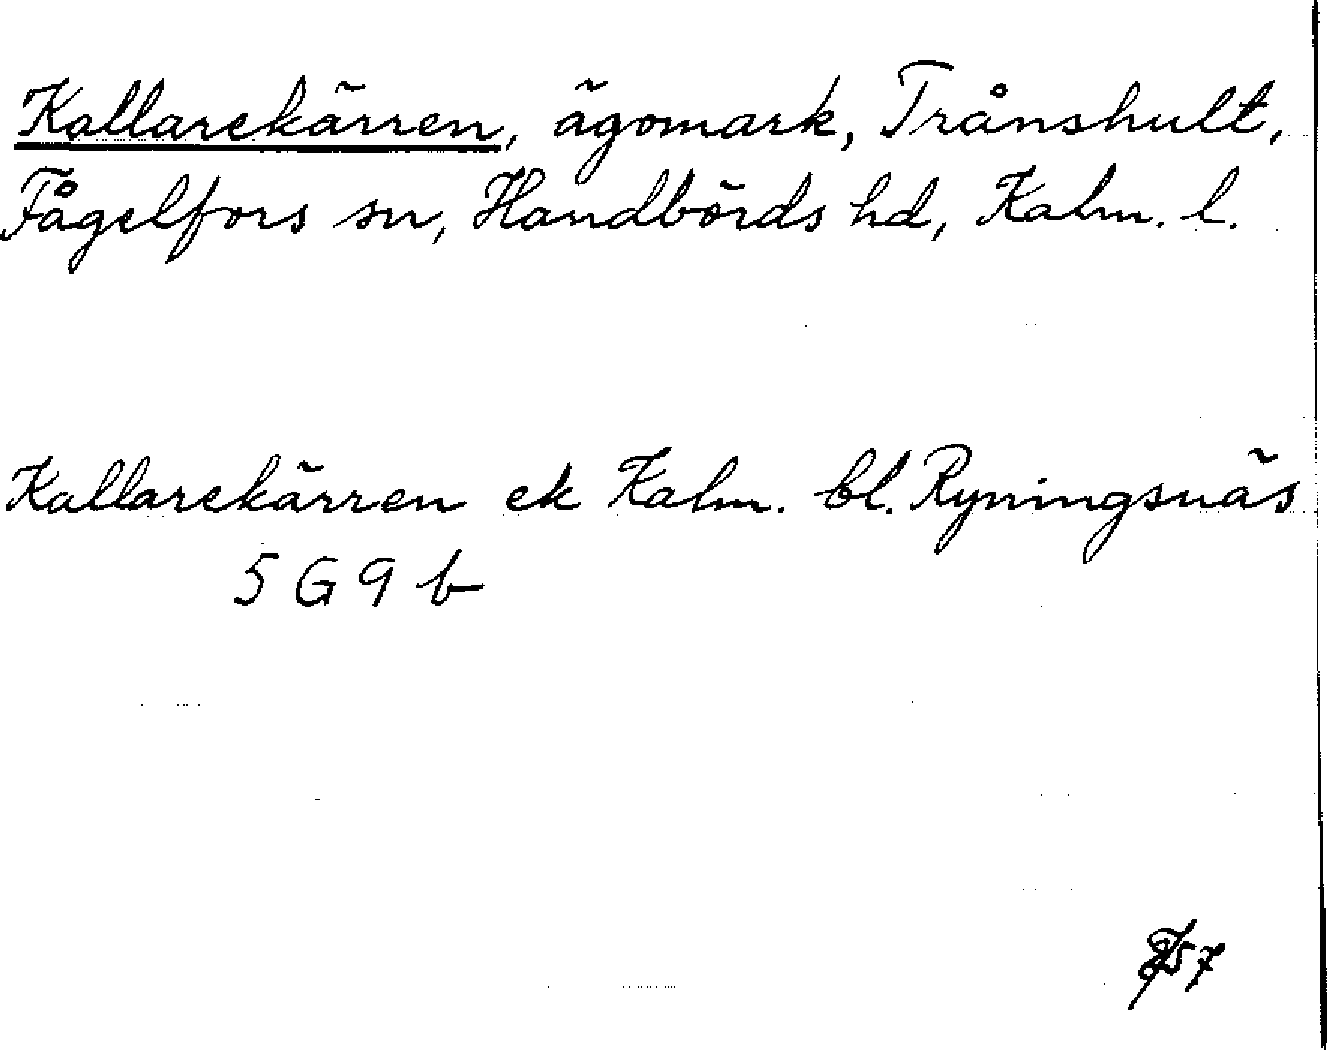 Kallarekärren, ägomark, Trånshult,
Fågelfors sn, Handbörds hd, Kalm. l.
Kallarekärren ek Kalm. bl. Ryningsnäs
5 G 9 b